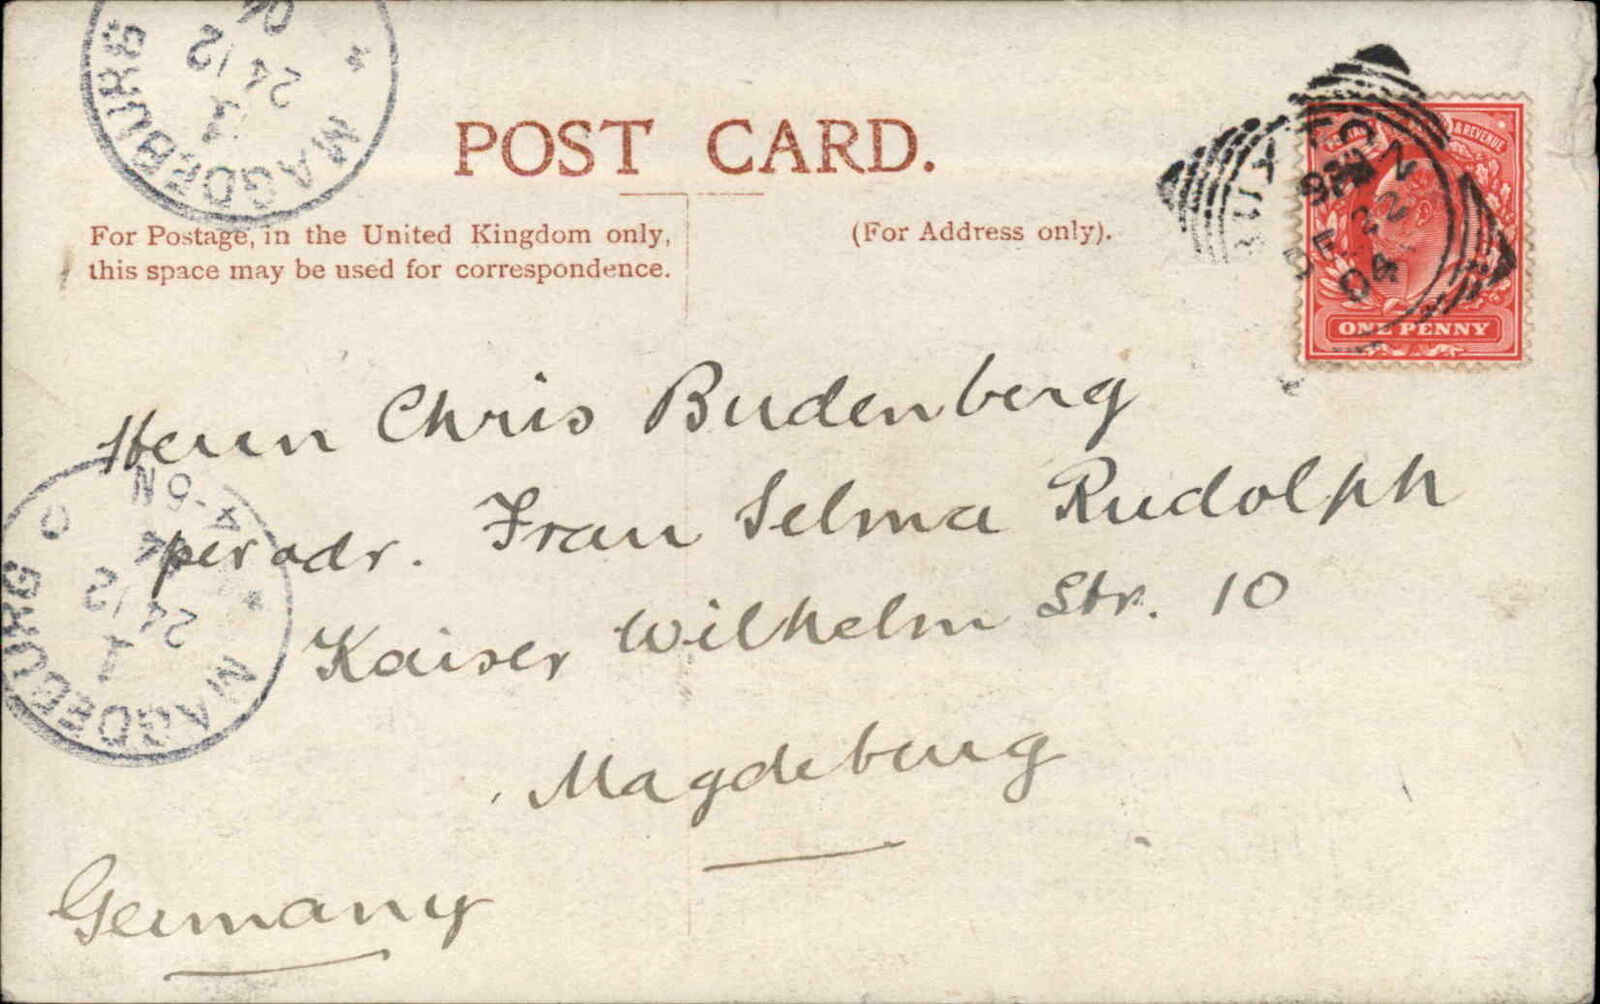 POST CARD.
For Postage, in the United Kingdom only,
this space may be used for correspondence.
(For Address only).
& REVENUE
ONE PENNY
BUXTON
DE 22
04
MAGDEBURG
24 12
1
Herrn Chris Budenberg
per adr. Frau Selma Rudolph
Kaiser Wilhelm Str. 10
Magdeburg
Germany
MAGDEBURG
1
24 12
4-5N